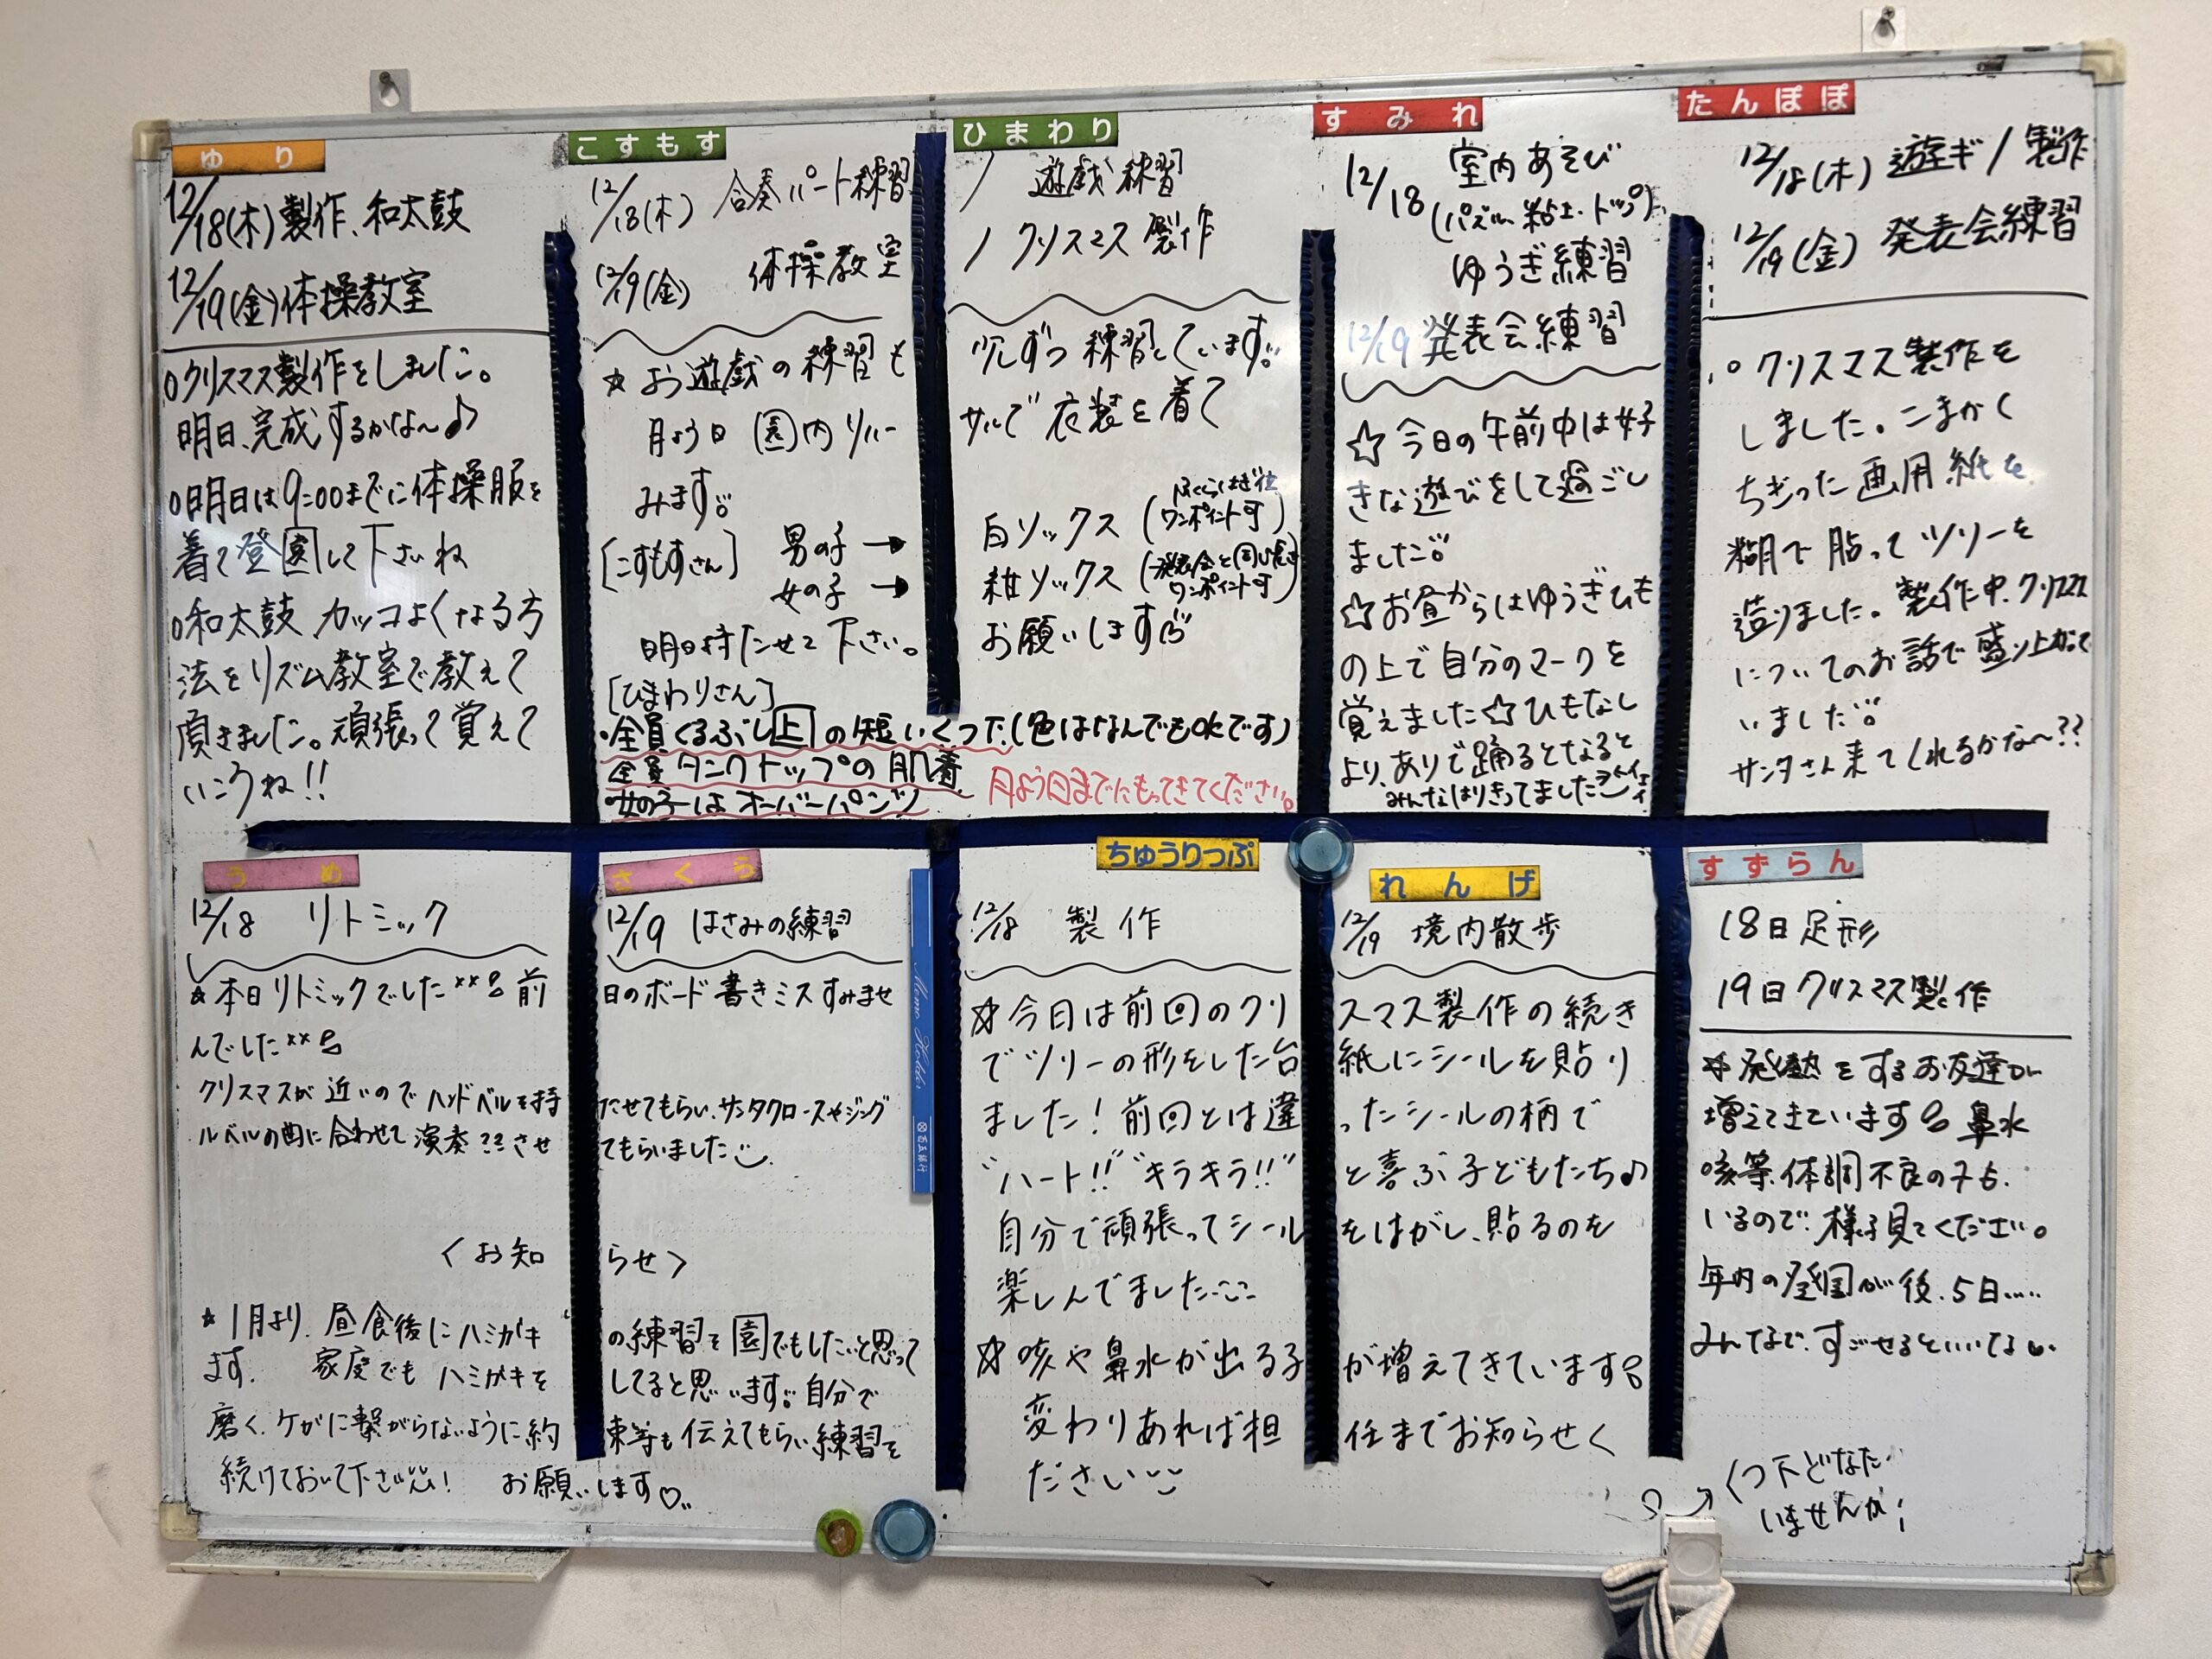 ゆり
12/18(木)製作、和太鼓
12/19(金)体操教室
○クリスマス製作をしました。
明日、完成するかな〜♪
○明日は9:00までに体操服を
着て登園して下さいね
○和太鼓 カッコよくなる方
法をリズム教室で教えて
頂きました。頑張って覚えて
いこうね!!
こすもす ひまわり
12/18(木) 合奏パート練習 / 遊戯練習
12/19(金) 体操教室 / クリスマス製作
☆お遊戯の練習も 少しずつ練習しています。
月よう日 園内リハーサルで 衣装を着て
みます。
[こすもすさん] 男の子 → 白ソックス (ふくらはぎ位 ワンポイント可)
女の子 → 紺ソックス (発表会と同じ長さ ワンポイント可)
明日持たせて下さい。お願いします
[ひまわりさん]
・全員くるぶし上の短いくつ下(色はなんでもOKです)
・全員タンクトップの肌着
・女の子はオーバーパンツ 月よう日までにもってきてください。
すみれ
12/18 室内あそび
(パズル、粘土、トップ)
ゆうぎ練習
12/19 発表会練習
☆今日の午前中は好
きな遊びをして過ごし
ました。
☆お昼からはゆうぎひも
の上で自分のマークを
覚えました☆ひもなし
より、ありで踊るとなると
みんなはりきってました
たんぽぽ
12/18(木) 遊ギ/製作
12/19(金) 発表会練習
○クリスマス製作を
しました。こまかく
ちぎった画用紙を
糊で貼ってツリーを
造りました。製作中、クリスマス
についてのお話で盛り上がって
いました。
サンタさん来てくれるかな〜??
うめ さくら
12/18 リトミック 12/19 はさみの練習
☆本日リトミックでした 前日のボード書きミスすみませ
んでした
クリスマスが近いのでハンドベルを持たせてもらい、サンタクロースやジング
ルベルの曲に合わせて演奏??させてもらいました
〈お知らせ〉
☆1月より、昼食後にハミガキの練習を園でもしたいと思って
ます。家庭でもハミガキをしてると思います。自分で
磨く、ケガに繋がらないように約束等も伝えてもらい練習を
続けておいて下さい! お願いします♡
ちゅうりっぷ れんげ
12/18 製作 12/19 境内散歩
☆今日は前回のクリスマス製作の続き
でツリーの形をした台紙にシールを貼り
ました!前回とは違ったシールの柄で
“ハート!!”“キラキラ!!”と喜ぶ子どもたち♪
自分で頑張ってシールをはがし、貼るのを
楽しんでました
☆咳や鼻水が出る子が増えてきています
変わりあれば担任までお知らせく
ださい
すずらん
18日足形
19日クリスマス製作
☆発熱をするお友達が
増えてきています 鼻水
咳等、体調不良の子も
いるので、様子見てください。
年内の登園が後、5日……
みんなで、すごせるといいな
くつ下どなたか
いませんか!
Memo Holder